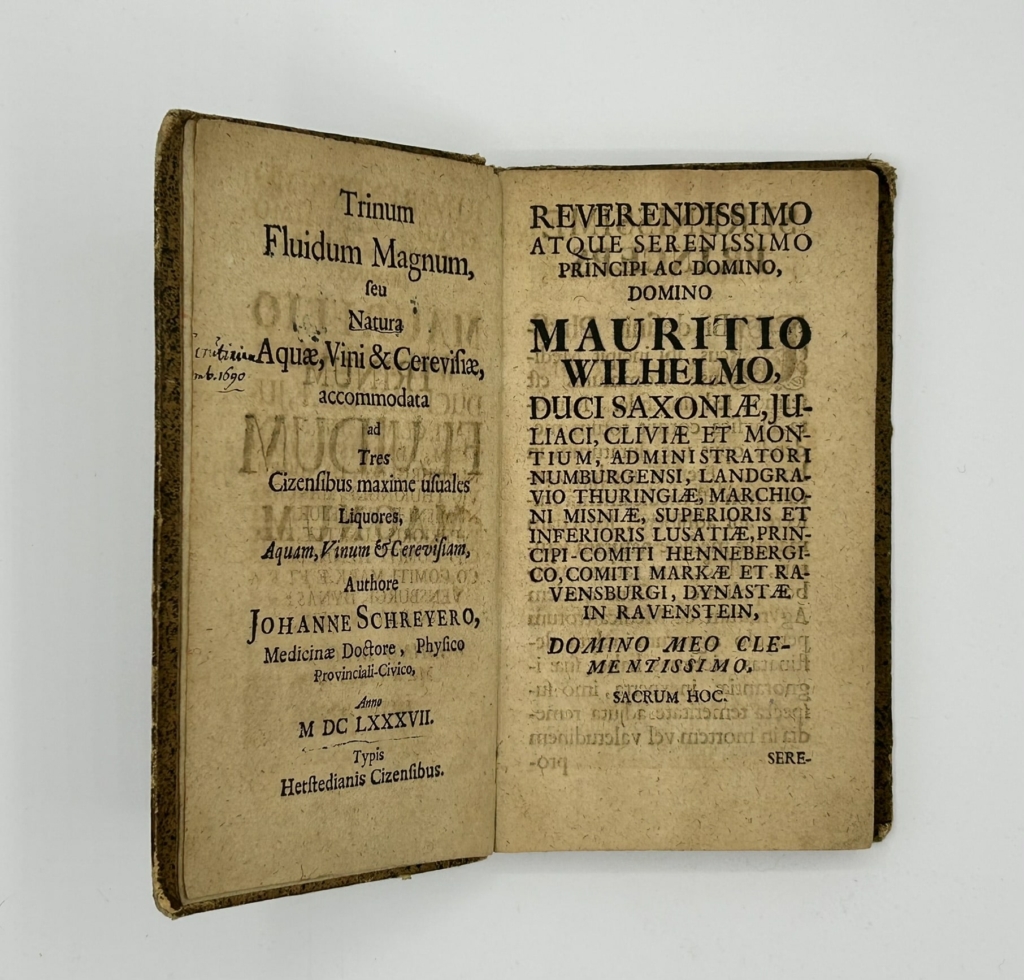 Trinum
Fluidum Magnum,
ſeu
Natura
Aquæ, Vini & Cereviſiæ,
1690
accommodata
ad
Tres
Cizenſibus maxime uſuales
Liquores,
Aquam, Vinum & Cereviſiam,
Authore
JOHANNE SCHREYERO,
Medicinæ Doctore, Phyſico
Provinciali-Civico,
Anno
M DC LXXXVII.
Typis
Hetſtedianis Cizenſibus.
REVERENDISSIMO
ATQUE SERENISSIMO
PRINCIPI AC DOMINO,
DOMINO
MAURITIO
WILHELMO,
DUCI SAXONIÆ, JU-
LIACI, CLIVIÆ ET MON-
TIUM, ADMINISTRATORI
NUMBURGENSI, LANDGRA-
VIO THURINGIÆ, MARCHIO-
NI MISNIÆ, SUPERIORIS ET
INFERIORIS LUSATIÆ, PRIN-
CIPI-COMITI HENNEBERGI-
CO, COMITI MARKÆ ET RA-
VENSBURGI, DYNASTÆ
IN RAVENSTEIN,
DOMINO MEO CLE-
MENTISSIMO,
SACRUM HOC.
SERE-